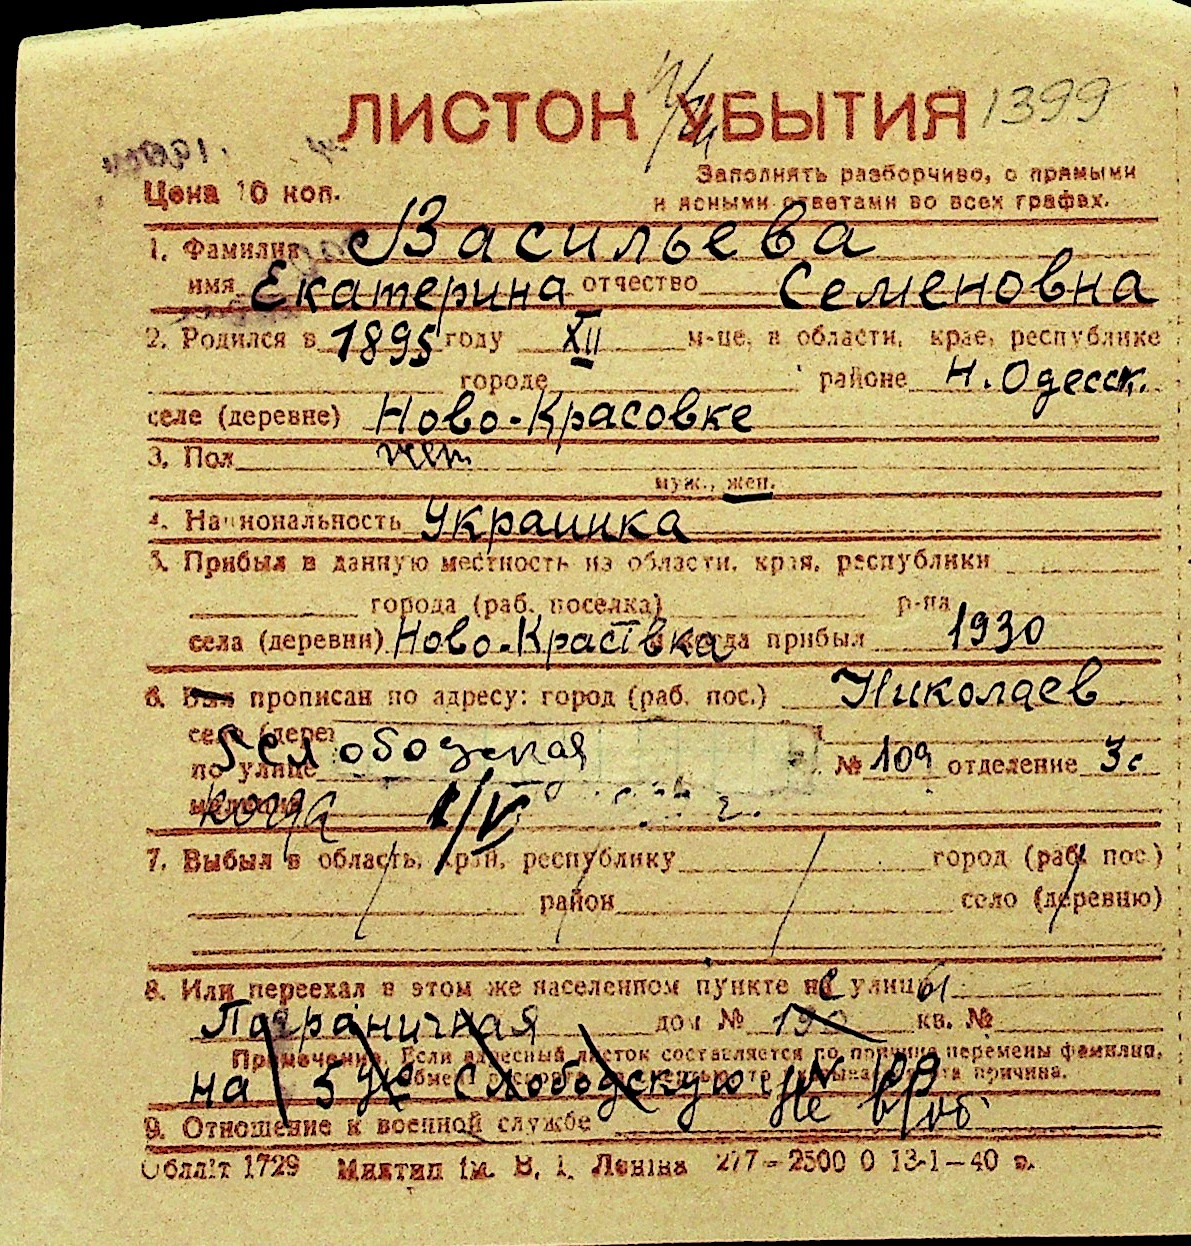 ЛИСТОК УБЫТИЯ 1399
Цена 10 коп.
Заполнять разборчиво, с прямыми
и ясными ответами во всех графах.
1. Фамилия Васильева
имя Екатерина отчество Семеновна
2. Родился в 1895 году XII м-це, в области, крае, республике
городе районе Н. Одесск.
селе (деревне) Ново-Красовке
3. Пол жен
муж., жен.
4. Национальность Украинка
5. Прибыл в данную местность из области, края, республики
города (раб. поселка) р-на
села (деревни) Ново-Красівка когда прибыл 1930
6. Был прописан по адресу: город (раб. пос.) Николаев
село
по улице 5 Слободская № 109 отделение 3
милиции когда 1/V г.
7. Выбыл в область, край, республику город (раб. пос.)
район село (деревню)
8. Или переехал в этом же населенном пункте с улицы
Пограничная дом № 190 кв. №
Примечание. Если адресный листок составляется по причине перемены фамилии,
причина.
на 5 Слободскую № 109
9. Отношение к военной службе Не
Обліт 1729 Миктип ім. В. І. Леніна 277–2500 0 13-1–40 г.